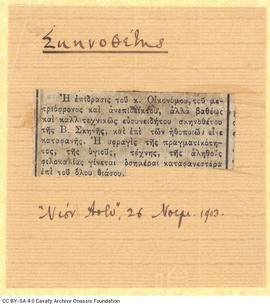 Σκηνοθέτης
Ἡ ἐπίδρασις τοῦ κ. Οἰκονόμου, τοῦ με-
τριόφρονος καὶ ἀνεπιδείκτου, ἀλλὰ βαθέως
καὶ καλλιτεχνικῶς εὐσυνειδήτου σκηνοθέτου
τῆς Β. Σκηνῆς, καὶ ἐπὶ τῶν ἠθοποιῶν εἶνε
καταφανής. Ἡ σφραγὶς τῆς πραγματικότη-
τος, τῆς ὑγιοῦς τέχνης, τῆς ἀληθοῦς
φιλοκαλίας γίνεται ὁσημέραι καταφανεστέρα
ἐπὶ τοῦ ὅλου θιάσου.
"Νέον Ἄστυ", 26 Νοεμ. 1903.
CC BY-SA 4.0 Cavafy Archive Onassis Foundation